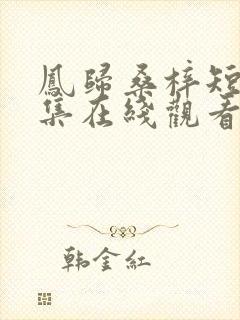 鳳歸桑梓短
集在綫觀看
韩金红